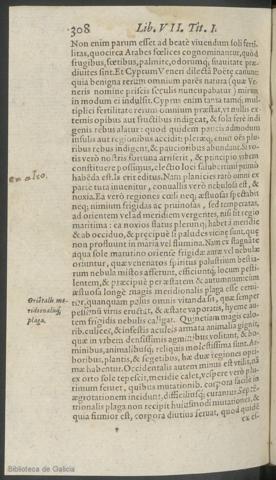 308 Lib. VII. Tit. I.
Non enim parum esset ad beatè vivendum soli ferti-
litas, quocirca Arabes fœlices cognominantur, quòd
frugibus, fœtibus, palmite, odorumq; suavitate præ-
divites sint. Et Cyprum Veneri dilectā Poëtę canunt:
quia benigna rerum omnium parēs natura (quæ Ve-
neris nomine priscis sæculis nuncupabatur) mirum
in modum ei indulsit. Cyprus enim tanta
plici fertilitate rerum omnium præstat, ut nullis ex-
ternis opibus aut fructibus indigeat, & sola ferè indi-
genis rebus alatur: quod quidem paucis admodum
insulis aut regionibus accidit
ribus rebus indigent, & paucioribus abundant. Si vo-
tis verò nostris fortuna arriserit, & principio urbem
constituere possimus, electio loci salubritatis primò
habēda est. Is erit editus. Nam planicies raró omni ex
parte tuta invenitur, convallis verò nebulosa est, &
noxia. Ea verò regiones cœli neq; æstuosas spectabit
neq; nimium frigidas ac pruinosas, sed temperatas,
ad orientem vel ad meridiem vergentes, nisi sit regio
maritima: ea noxios flatus plerunq; habet à meridie
& ab occiduo, & præcipuè si paludes vicinę sunt, quę
non profluunt in maria vel flumina. Nam ex stagnāte
aqua sole matutino oriente frigidæ auræ vel nebulæ
oriuntur, quæ venenatos spiritus palustrium bestia-
rum nebula mistos afferunt, efficiuntq; locum pesti-
lentem, & præcipuè per æstatem & autumnum: cum
æstuosa longè magis meridionalis plaga esse censea-
tur, quanquam palus omnis vitanda sit, quæ semper
virus eructat, & æstate vaporatis, hyeme au-
tem frigidis nebulis caligat. Quinetiam magis calo-
rib. culices, & infestis aculeis armata animalia gignit,
quæ in urbem densissimis agminibus volitant, & ho-
minibus, animalibusq; reliquis molestissima sunt. Ar-
boribus, plantis, & segetibus, hæ duæ regiones opti-
mæ habentur. Occidentalis autem minus est utilis, nā
ex orto sole tepescit, meridie calet, vespere verò plu-
rimum fervet, quibus mutationib. corpora facilè in
ægrotationem incidunt, difficiliusq; curantur. Septē-
trionalis plaga non recipit huiusmodi mutationes, &
quia firmior est, corpora diutius servat, quod quidē
ex ei-
Oriētalis me-
ridionalisq;
plaga.
Biblioteca de Galicia